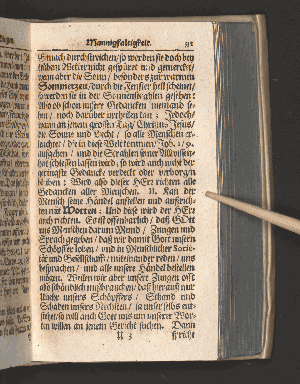 Mannigfaltigkeit. 91
Gemach durchstreichen / so werden sie doch bey
trüben Wetter nicht gespüret und gemercket /
wann aber die Sonn / besonders zur warmen
Sommerzeit / durch die Fenster hell scheinet /
so werden sie in der Sonnen leuchten gesehen:
Also ob schon unsere Gedancken niemand se-
hen / noch darüber urtheilen kan: Jedoch /
wann an jenem grossen Tag / Christus Jesus /
die Sonne und Liecht / so alle Menschen er-
leuchtet / die in diese Welt kommen / Joh. 1 / 9.
aufgehen / und die Strahlen seiner Allwissen-
heit schiessen lassen wird / so wird auch nicht der
geringste Gedancke verdeckt oder verborgen
bleiben: Wird also dieser HErr richten alle
Gedancken aller Menschen. II. Kan der
Mensch seine Händel anstellen und ausrich-
ten mit Worten: Und diese wird der HErr
auch richten. Es ist offenbarlich / daß GOtt
uns Menschen darum Mund / Zungen und
Sprach gegeben / daß wir damit Gott unsern
Schöpfer loben / und in Menschlicher Societ-
ät und Gesellschaft / miteinander reden / uns
besprachen / und alle unsere Händel bestellen
mögen. Weilen wir aber unsere Zungen offt
also schändlich mißbrauchen / daß hieraus nur
Unehr unsers Schöpffers / Schand und
Schaden unsers Nechsten / ja unser selbs ent-
stehet / so will auch Gott uns um unserer Wor-
ten willen an jenem Gericht suchen. Dann
U 3 spricht